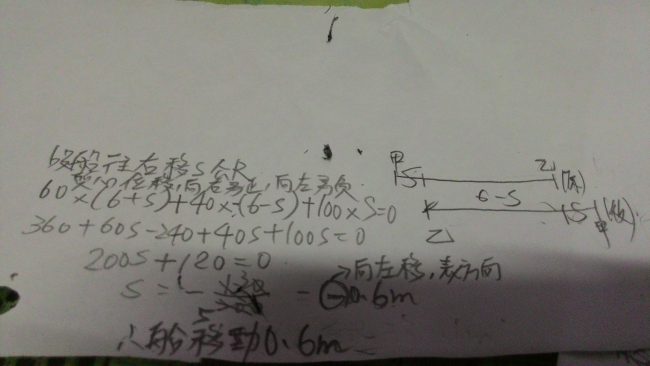 假設船往右移S公尺
質心位移,向右為正,向左為負
60×(6+S)+40×-(6-S)+100×S=0
360+60S-240+40S+100S=0
200S+120=0
S=- = -0.6m
→向左移,表方向
∴船移動0.6m
甲 S 乙 (原)
6-S
乙 S 甲 (後)